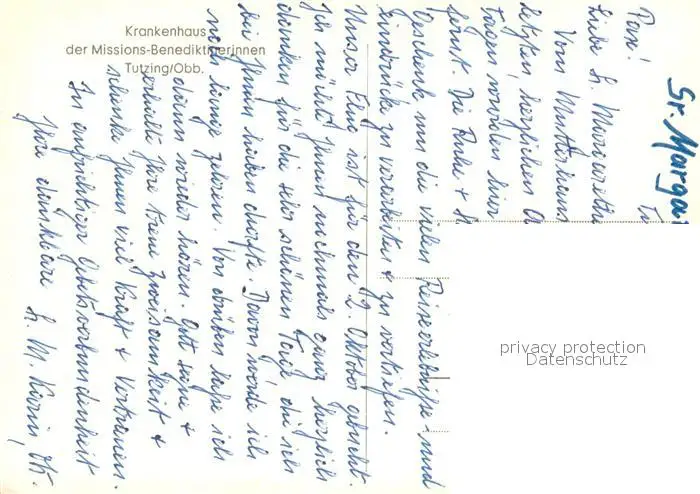 Krankenhaus
der Missions-Benediktinerinnen
Tutzing/Obb.
Sr. Marga
Pax!
Liebe Sr.
Vom Mutterhaus
letzten herzlichen
Tagen hier
Die Ruhe +
Geschenk um die vielen Reiseerlebnisse und
Eindrücke zu verarbeiten + zu vertiefen.
Unser Flug ist für den 12. Oktober gebucht.
Ich möchte Ihnen nochmals ganz herzlich
danken für die sehr schönen Tage die ich
bei Ihnen haben durfte. Davon werde ich
noch lange zehren. Von drüben lasse ich
dann wieder hören. Gott segne +
erhalte Ihre treue Zweisamkeit +
schenke Ihnen viel Kraft + Vertrauen.
In aufrichtiger Gebetsverbundenheit
Ihre dankbare Sr. M. Karin
privacy protection
Datenschutz